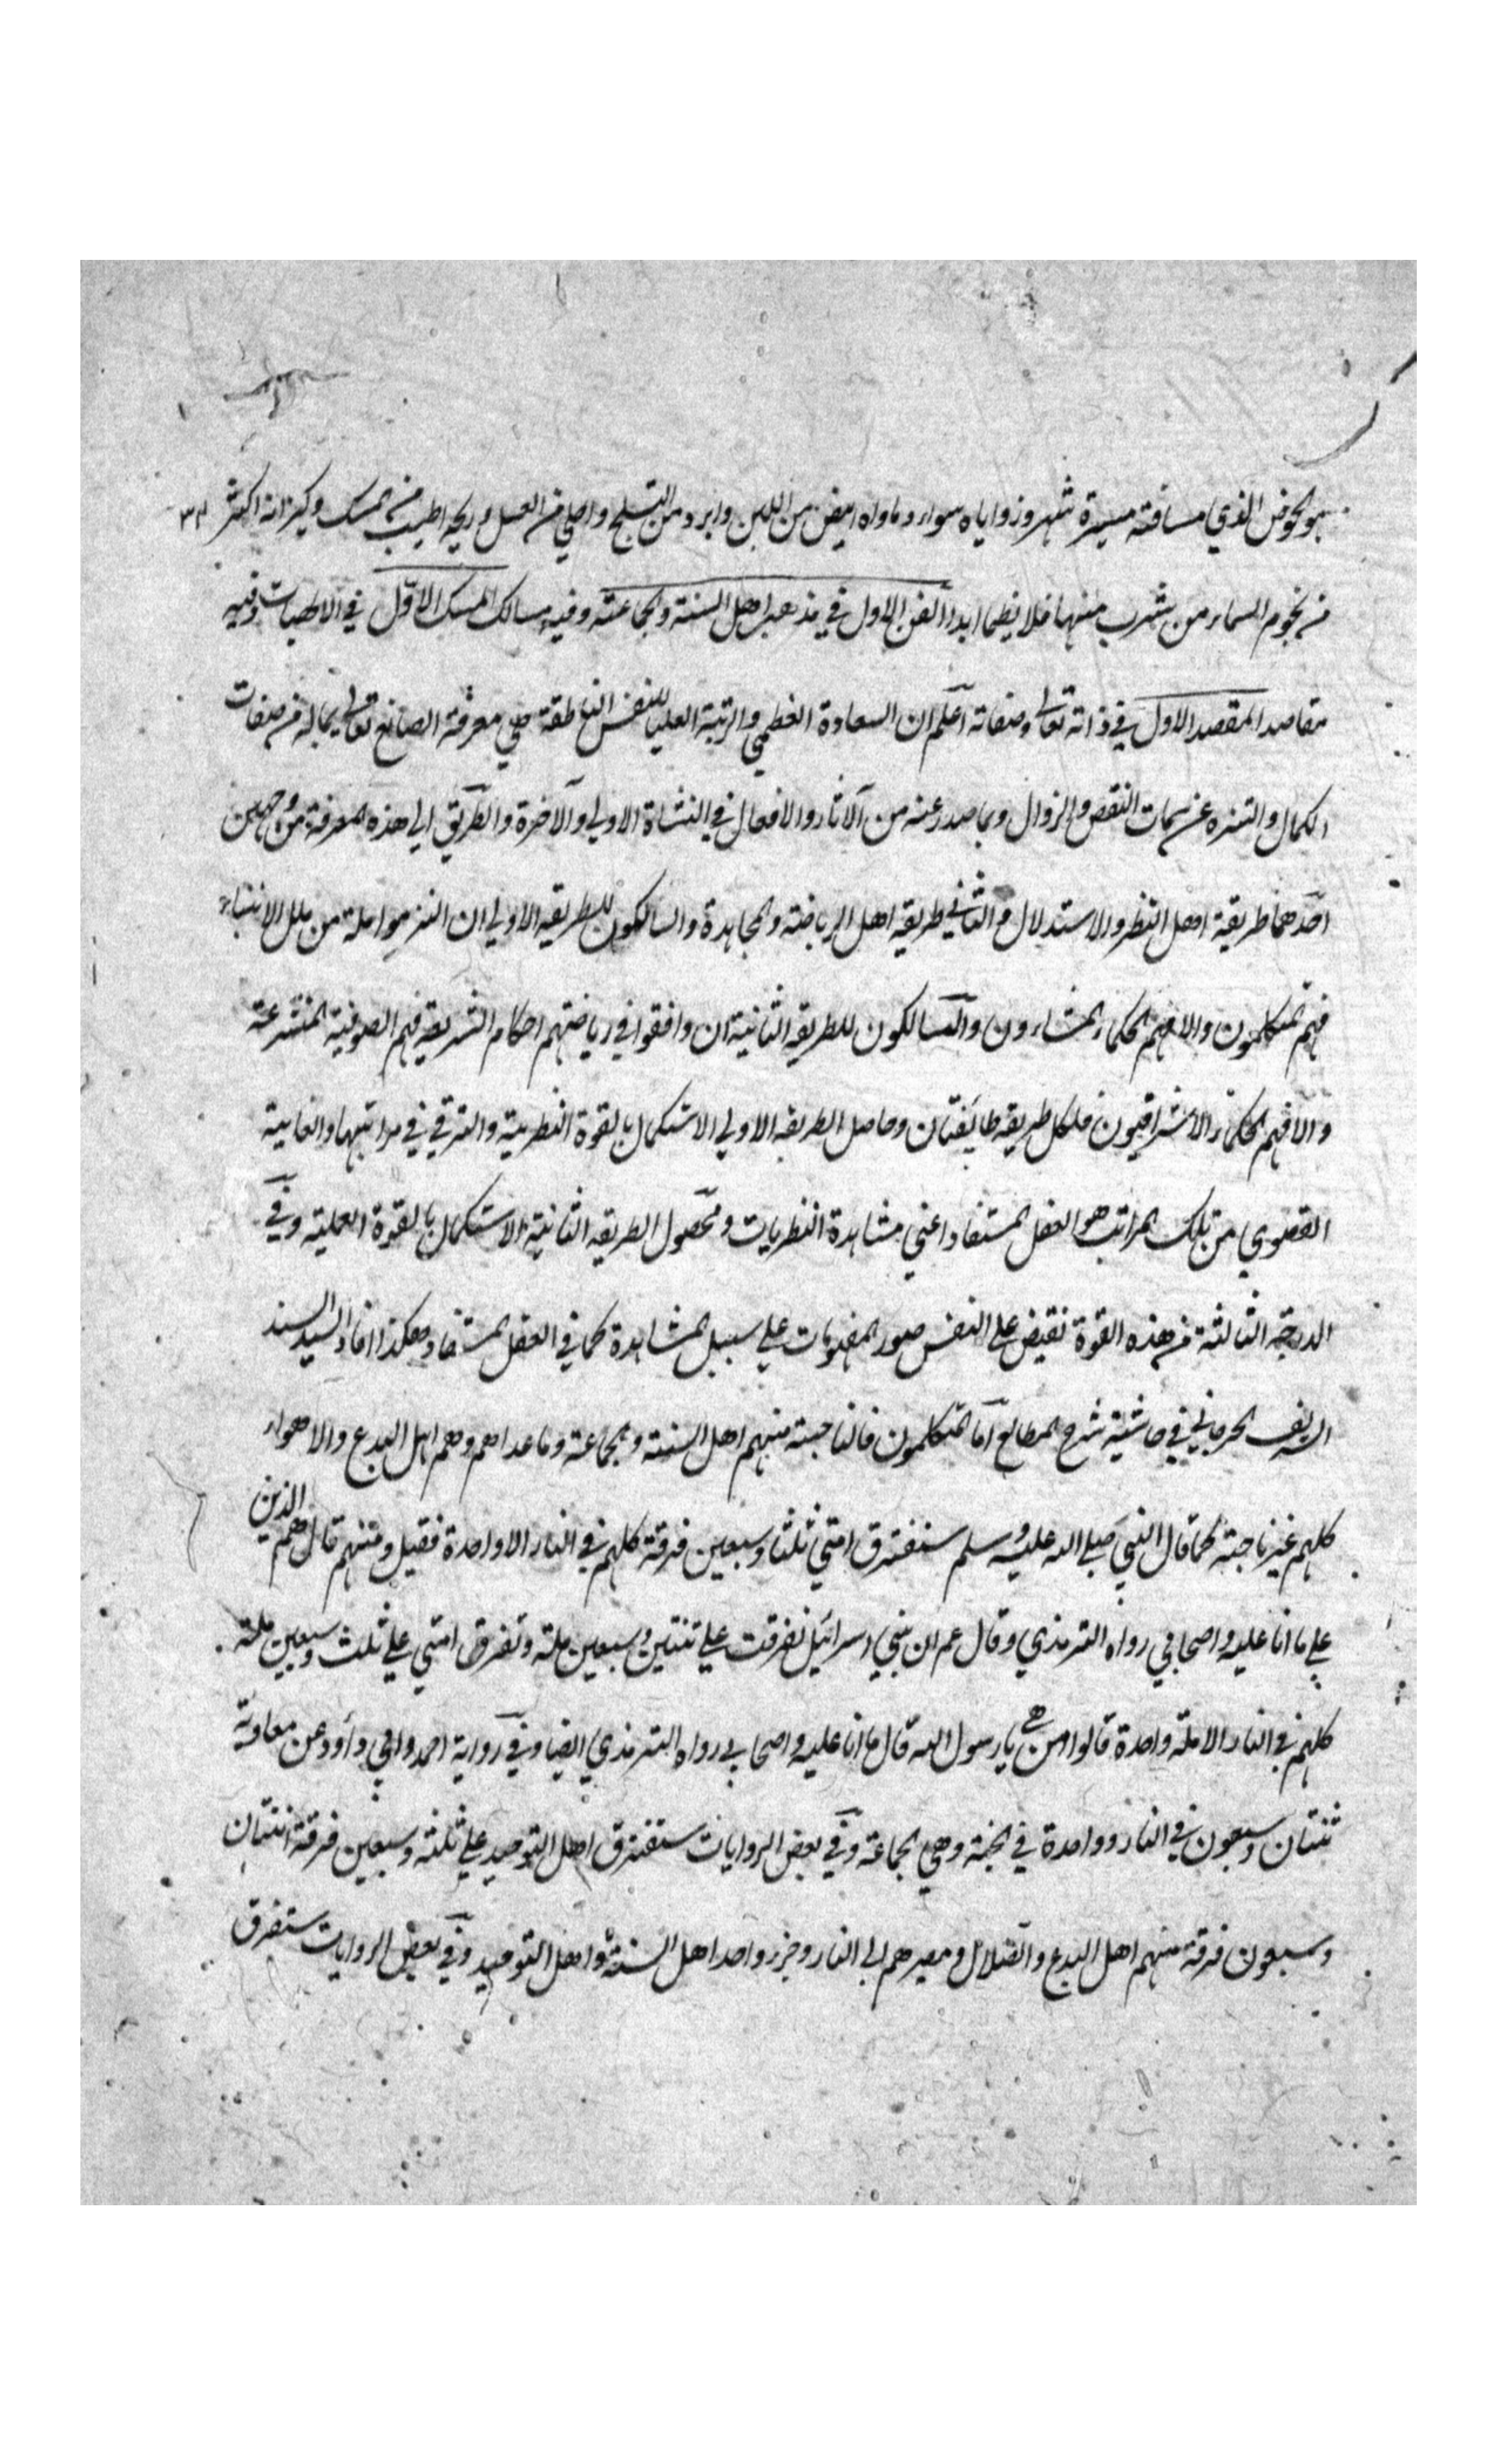 هو الحوض الذي مسافته مسيرة شهر وزواياه سواء وماواه ابيض من اللبن وابرد من الثلج واحلي من العسل وريحه اطيب من المسك وكيزانه اكثر ٣٤
من نجوم السماء من شرب منها فلا يظما ابدا الفن الاول في مذهب اهل السنة والجماعة وفيه مسالك المسلك الاول في الالهيات وفيه
مقاصد المقصد الاول في ذاته تعالى وصفاته اعلم ان السعادة العظمي والرتبة العليا للنفس الناطقة هي معرفة الصانع تعالى بماله من صفات
الكمال والتنزه عن سمات النقص والزوال وبما صدر عنه من الآثار والافعال في النشاة الاولي والآخرة والطريق الي هذه المعرفة من وجهين
احدهما طريقة اهل النظر والاستدلال والثاني طريقه اهل الرياضة والمجاهدة والسالكون للطريقه الاولي ان التزموا ملة من ملل الانبياء
فهم المتكلمون والا فهم الحكماء المشاءون والسالكون للطريقه الثانية ان وافقوا في رياضتهم احكام الشريعة فهم الصوفية المتشرعة
والا فهم الحكماء الاشراقيون فلكل طريقه طايفتان وحاصل الطريقه الاولي الاستكمال بالقوة النظرية والترقي في مراتبها والغاية
القصوي من تلك المراتب هو العقل المستفاد اعني مشاهدة النظريات ومحصول الطريقه الثانية الاستكمال بالقوة العملية وفي
الدرجة الثالثة من هذه القوة تفيض علي النفس صور المعلومات علي سبيل المشاهدة كما في العقل المستفاد وهكذا افاد السيد السند
الشريف الجرجاني في حاشية شرح المطالع اما المتكلمون فالناجية منهم اهل السنة والجماعة وماعداهم وهم اهل البدع والاهواء
كلهم غير ناجية كما قال النبي صلي الله عليه وسلم ستفترق امتي ثلثا وسبعين فرقة كلهم في النار الا واحدة فقيل ومنهم قال هم الذين
علي ما انا عليه واصحابي رواه الترمذي وقال عم ان بني اسرائيل تفرقت علي ثنتين وسبعين ملة وتفرق امتي علي ثلث وسبعين ملة
كلهم في النار الا ملة واحدة قالوا من هي يا رسول الله قال ما انا عليه واصحابي رواه الترمذي ايضا وفي رواية احمد وابي داود عن معاوية
ثنتان وسبعون في النار وواحدة في الجنة وهي الجماعة وفي بعض الروايات ستفترق اهل التوحيد علي ثلثة وسبعين فرقة اثنتان
وسبعون فرقة منهم اهل البدع والضلال ومصيرهم الي النار وجزء واحد اهل السنة واهل التوحيد وفي بعض الروايات ستفرق